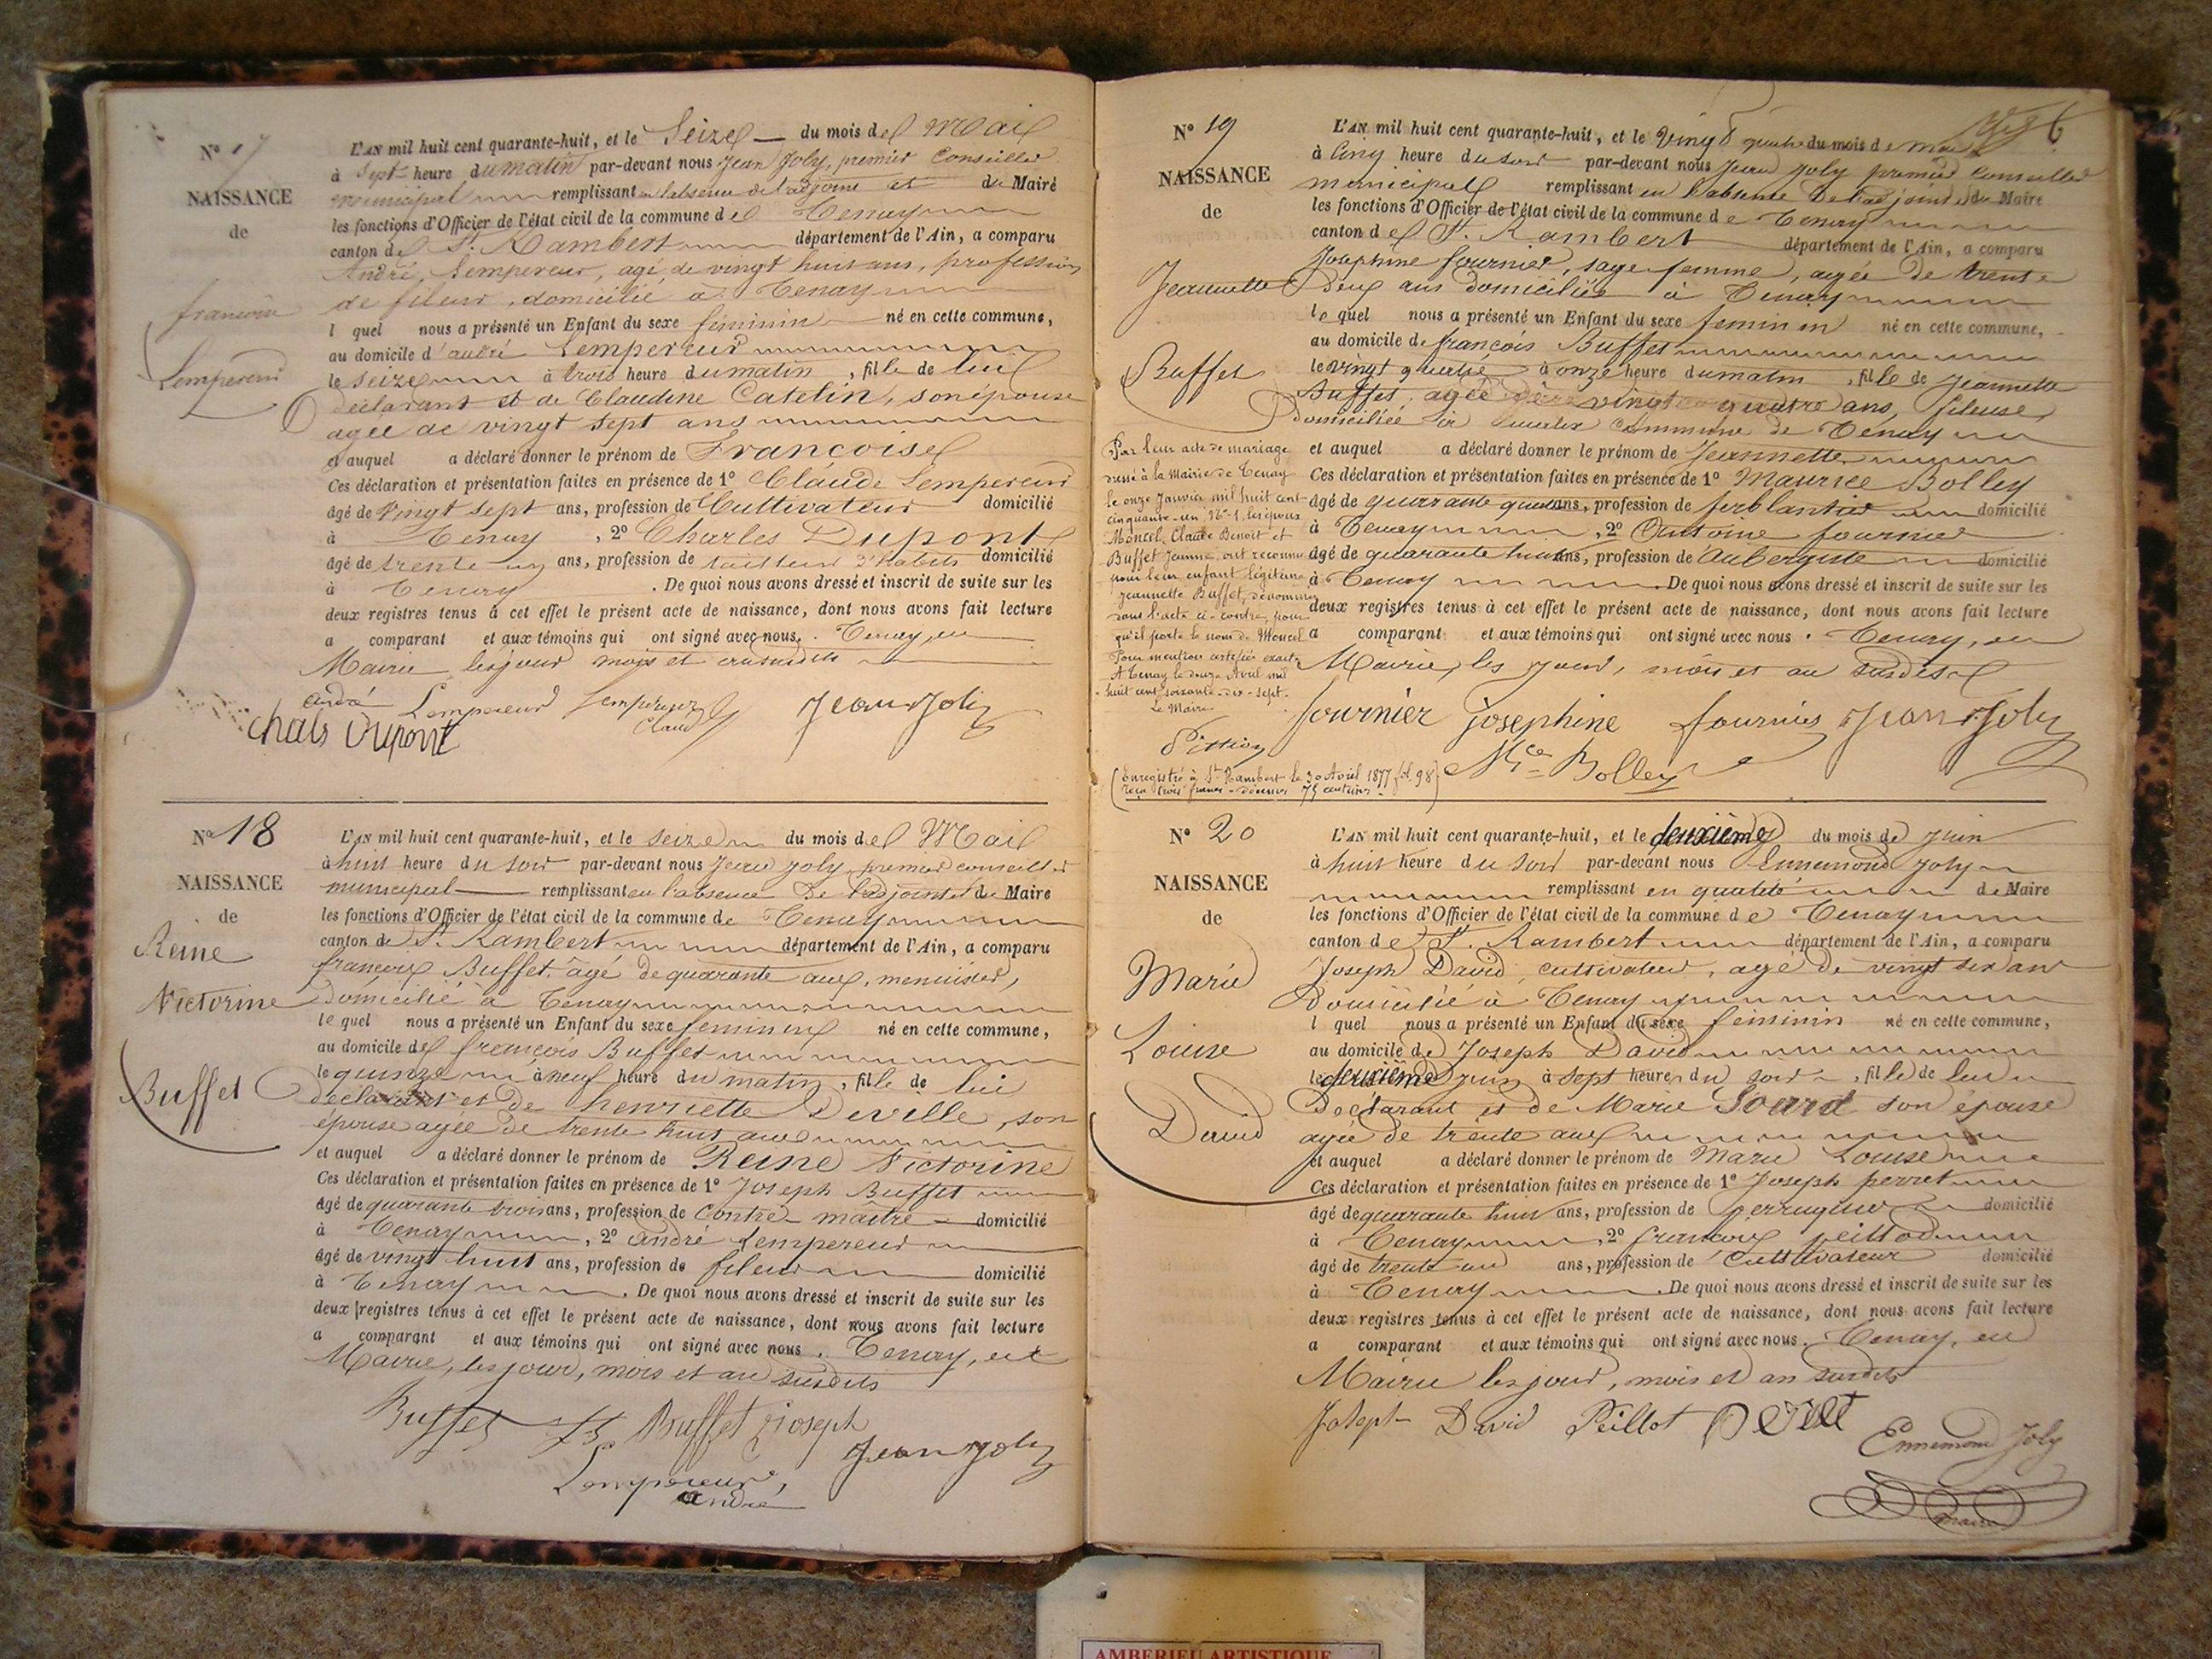 N° 17
NAISSANCE
de
françoise
Lempereur
L'AN mil huit cent quarante-huit, et le Seize du mois de Mai
à Sept heure du matin par-devant nous Jean Joly, premier Conseiller
municipal remplissant en l'absence de l'adjoint et du Maire
les fonctions d'Officier de l'état civil de la commune de Tenay
canton de St. Rambert département de l'Ain, a comparu
André Lempereur, agé de vingt huit ans, profession
de fileur, domicilié à Tenay
l quel nous a présenté un Enfant du sexe féminin né en cette commune,
au domicile d'andré Lempereur
le seize à trois heure du matin, fille de lui
déclarant et de Claudine Catelin, son épouse
agée de vingt sept ans
et auquel a déclaré donner le prénom de Françoise
Ces déclaration et présentation faites en présence de 1° Claude Lempereur
âgé de vingt sept ans, profession de Cultivateur domicilié
à Tenay, 2° Charles Dupont
âgé de trente un ans, profession de tailleur d'habits domicilié
à Tenay. De quoi nous avons dressé et inscrit de suite sur les
deux registres tenus à cet effet le présent acte de naissance, dont nous avons fait lecture
a comparant et aux témoins qui ont signé avec nous. Tenay, en
Mairie, les jour mois et an susdits
andré Lempereur Lempereur Claud Jean Joly
Chals Dupont
N° 18
NAISSANCE
de
Reine
Victorine
Buffet
L'AN mil huit cent quarante-huit, et le seize du mois de Mai
à huit heure du soir par-devant nous Jean Joly premier conseiller
municipal remplissant en l'absence de l'adjoint et du Maire
les fonctions d'Officier de l'état civil de la commune de Tenay
canton de St. Rambert département de l'Ain, a comparu
françois Buffet, âgé de quarante ans, menuisier,
domicilié à Tenay
le quel nous a présenté un Enfant du sexe feminin né en cette commune,
au domicile de françois Buffet
le quinze à neuf heure du matin, fille de lui
déclarant et de henriette Deville, son
épouse agée de trente huit ans
et auquel a déclaré donner le prénom de Reine Victorine
Ces déclaration et présentation faites en présence de 1° Joseph Buffet
âgé de quarante trois ans, profession de Contre-maitre domicilié
à Tenay, 2° andré Lempereur
âgé de vingt huit ans, profession de fileur domicilié
à Tenay. De quoi nous avons dressé et inscrit de suite sur les
deux registres tenus à cet effet le présent acte de naissance, dont nous avons fait lecture
a comparant et aux témoins qui ont signé avec nous. Tenay, en
Mairie, les jour, mois et an susdits
Buffet Buffet joseph
Jean Joly
Lempereur,
andré
6
N° 19
NAISSANCE
de
Jeannette
Buffet
Par leur acte de mariage
dressé à la Mairie de Tenay
le onze Janvier mil huit cent
cinquante-un, N° 1, les époux
Moncel, Claude Benoit et
Buffet Jeanne, ont reconnu
pour leur enfant légitime
Jeannette Buffet, dénommée
dans l'acte ci-contre, pour
qu'il porte le nom de Moncel
Pour mention certifiée exacte
A Tenay le douze Avril mil
huit cent soixante-dix-sept.
Le Maire
(Enregistré à St Rambert le 30 Avril 1877 fol. 98
reçu trois francs - décimes 75 centimes.
L'AN mil huit cent quarante-huit, et le vingt quatre du mois de mai
à Cinq heure du soir par-devant nous Jean Joly premier conseiller
municipal remplissant en l'absence de l'adjoint et du Maire
les fonctions d'Officier de l'état civil de la commune de Tenay
canton de St. Rambert département de l'Ain, a comparu
Joséphine fournier, sage femme, agée de trente
deux ans domiciliée à Tenay
le quel nous a présenté un Enfant du sexe feminin né en cette commune,
au domicile de françois Buffet
le vingt quatre à onze heure du matin, fille de Jeannette
Buffet, agée de vingt quatre ans, fileuse,
domiciliée commune de Tenay
et auquel a déclaré donner le prénom de Jeannette
Ces déclaration et présentation faites en présence de 1° Maurice Bolley
âgé de quarante ans, profession de ferblantier domicilié
à Tenay, 2° Antoine fournier
âgé de quarante huit ans, profession de Aubergiste domicilié
à Tenay. De quoi nous avons dressé et inscrit de suite sur les
deux registres tenus à cet effet le présent acte de naissance, dont nous avons fait lecture
a comparant et aux témoins qui ont signé avec nous. Tenay, en
Mairie, les jour, mois et an susdits
fournier josephine fournier Jean Joly
Mce Bolley
N° 20
NAISSANCE
de
Marie
Louise
David
L'AN mil huit cent quarante-huit, et le deuxième du mois de Juin
à huit heure du soir par-devant nous Ennemond Joly
remplissant en qualité de Maire
les fonctions d'Officier de l'état civil de la commune de Tenay
canton de St. Rambert département de l'Ain, a comparu
Joseph David, cultivateur, agé de vingt six ans
domicilié à Tenay
l quel nous a présenté un Enfant du sexe féminin né en cette commune,
au domicile de Joseph David
le deuxième juin à sept heure du soir, fille de lui
Déclarant et de Marie Soard son épouse
agée de trente ans
et auquel a déclaré donner le prénom de Marie Louise
Ces déclaration et présentation faites en présence de 1° Joseph perret
âgé de quarante huit ans, profession de perruquier domicilié
à Tenay, 2° françois peillod
âgé de trente un ans, profession de Cultivateur domicilié
à Tenay. De quoi nous avons dressé et inscrit de suite sur les
deux registres tenus à cet effet le présent acte de naissance, dont nous avons fait lecture
a comparant et aux témoins qui ont signé avec nous. Tenay, en
Mairie les jour, mois et an susdits
Joseph David Peillot
Ennemond Joly
maire
AMBERIEU ARTISTIQUE